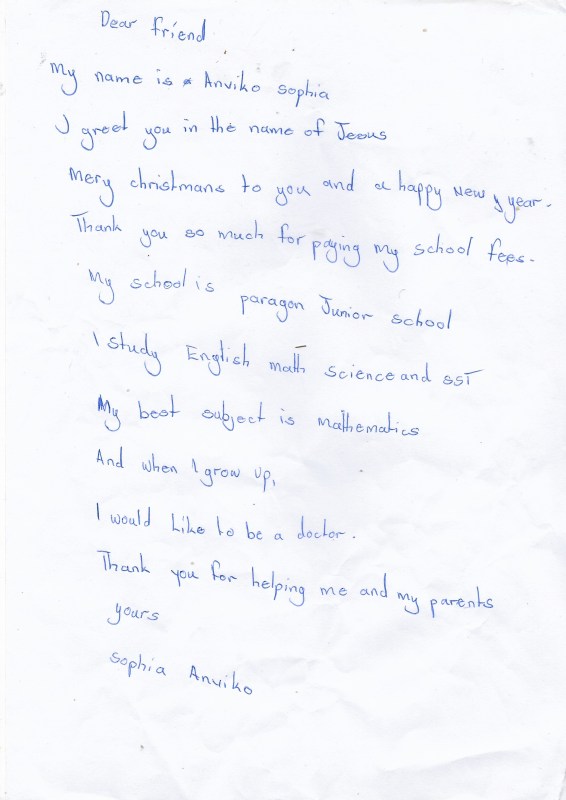 Dear friend
My name is Anviko sophia
I greet you in the name of Jesus
Mery christmans to you and a happy New year.
Thank you so much for paying my school fees.
My school is paragon Junior school
I study English math science and SST
My best subject is mathematics
And when I grow up,
I would Like to be a doctor.
Thank you for helping me and my parents
yours
sophia Anviko